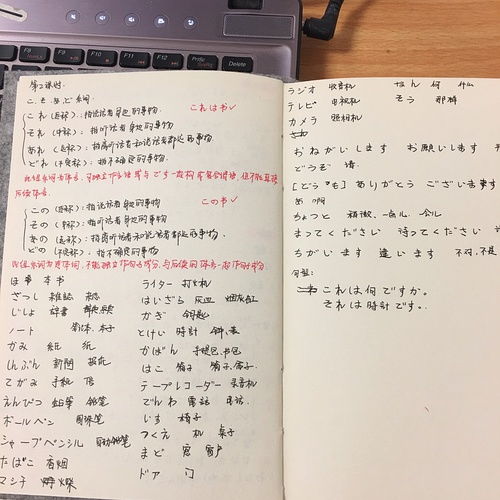 F8 F9 F10 F11 F12 PrtSc Delete
第二课时.
こ.そ.あ.ど系词.
これ(近称):指说话者身边的事物. これは书✓
それ(中称):指听话者身边的事物.
あれ(远称):指离听话者和说话者都远的事物.
どれ(不定称):指不确定的事物.
この(近称):指说话者身边的事物 この书✓
その(中称):指听话者身边的事物.
あの(远称):指离听话者和说话者都远的事物.
どの(不定称):指不确定的事物
ほん 本 书
ざっし 雑誌 杂志
じしょ 辞書 辞典
ノート 笔记本.本子
かみ 紙 纸
しんぶん 新聞 报纸
てがみ 手紙 信
えんぴつ 鉛筆 铅笔
ボールペン 圆珠笔
シャープペンシル 自动铅笔
たばこ 香烟
マシチ
ライター 打火机
はいざら 灰皿 烟灰缸
かぎ 钥匙
とけい 時計 钟、表
かばん 手提包.书包
はこ 箱子
テープレコーダー 录音机
でんわ 電話 电话.
いす 椅子
つくえ 机 桌子
まど 窓 窗户
ドア 门
ラジオ 收音机 なん 何 什么
テレビ 电视机 そう 那样
カメラ 照相机
おねがいします お願いします
どうぞ 请.
[どうも] ありがとう ございます
あ 啊
ちょっと 稍微、一点儿
まってください 待ってください
ちがいます 違います 不对.不是
これは何ですか。
それは時計です。